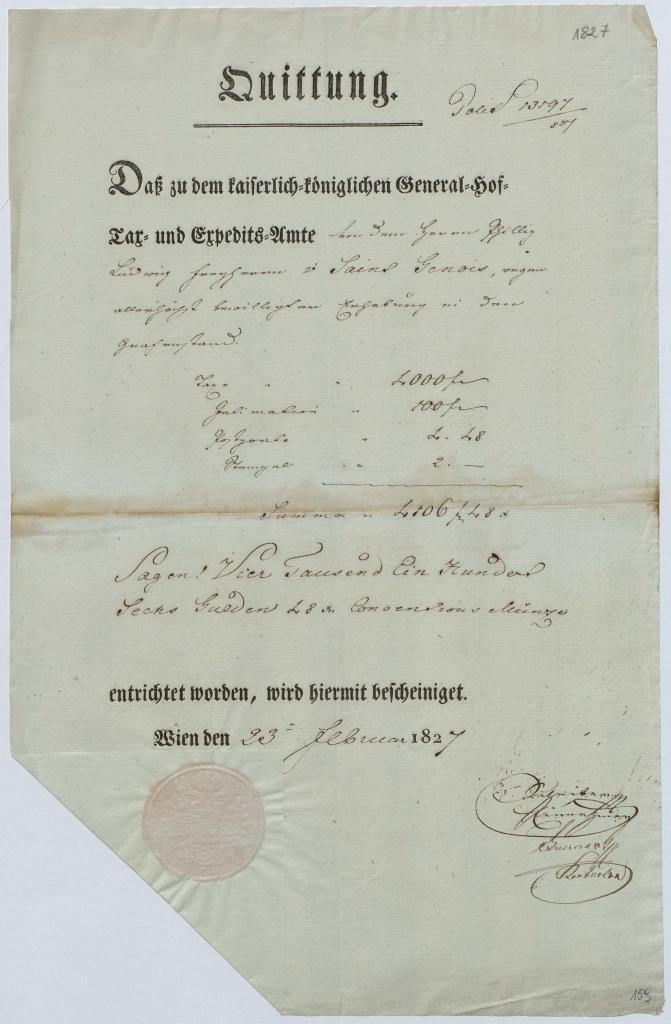 1827
Quittung.
13197
Daß zu dem kaiserlich-königlichen General-Hof-
Tax- und Expedits-Amte von dem Herrn Phillip
Ludwig Freyherrn v Saint Genois, wegen
allerhöchst bewilligter Erhebung in den
Grafenstand.
Taxe " " 4000 f
Intimation " 100 f
Postporto " 4. 48
Stempel " 2. —
Summa " 4106 f 48 x
Sagen! Vier Tausend Ein Hundert
Sechs Gulden 48 xr Convensions Münze
entrichtet worden, wird hiermit bescheiniget.
Wien den 23 Februar 1827
159